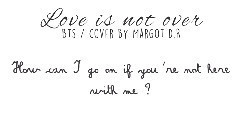 Love is not over
BTS / COVER BY MARGOT D.R
How can I go on if you're not here
with me ?